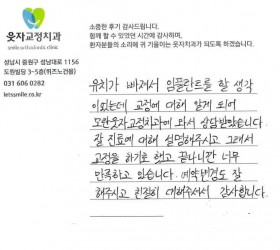 소중한 후기 감사드립니다.
함께 할 수 있었던 시간에 감사하며,
환자분들의 소리에 귀 기울이는 웃자치과가 되도록 하겠습니다.
웃자교정치과
smile orthodontic clinic
성남시 중원구 성남대로 1156
도원빌딩 3~5층(퀴즈노건물)
031 606 0282
letssmile.co.kr
유치가 빠져서 임플란트를 할 생각
이었는데 교정에 대해 알게 되어
모란웃자교정치과에 와서 상담받았습니다.
잘 진료에 대해 설명해주시고 그래서
교정을 하기로 했고 끝나니깐 너무
만족하고 있습니다. 예약변경도 잘
해주시고 친절히 대해주셔서 감사합니다.